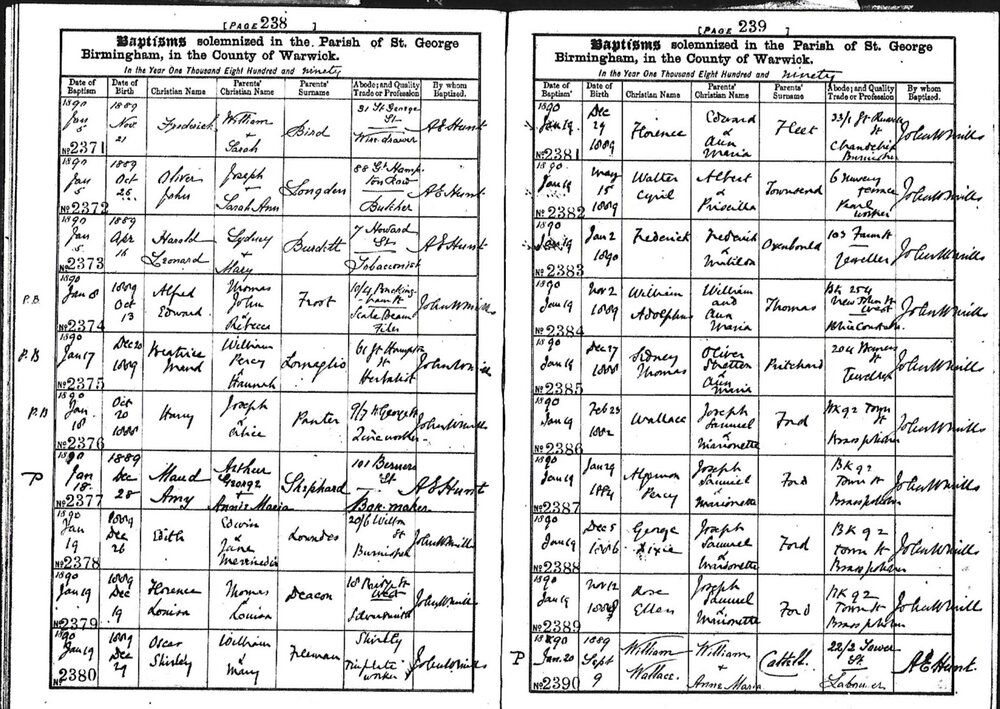 [PAGE 238 ]
Baptisms solemnized in the Parish of St. George
Birmingham, in the County of Warwick.
In the Year One Thousand Eight Hundred and ninety
Date of Baptism Date of Birth Christian Name Parents' Christian Name Parents' Surname Abode; and Quality Trade or Profession By whom Baptized.
1890 1889 31 St George
Jan Nov Frederick William Bird St A E Hunt
5 21 Sarah Wire drawer
No 2371
1890 1889 88 Gt Hamp
Jan Oct Oliver Joseph Longden ton Row A E Hunt
5 26 John Sarah Ann Butcher
No 2372
1890 1889 7 Howard
Jan Apr Harold Sydney Burditt St A E Hunt
5 16 Leonard + Mary Tobacconist
No 2373
P.B. 1890 1889 Alfred Thomas 10/4 Bucking-
Jan 8 Oct Edward John Frost ham St John W Mills
13 Rebecca Scale Beam
No 2374 Filer
P.B 1890 Dec 20 Beatrice William 61 Gt Hampton
Jan 17 1889 Maud Percy St John W Mills
Hannah Herbalist
No 2375
P.B 1890 Oct Joseph 9/7 St George St
Jan 20 Harry Panter John W Mills
18 1888 Zinc worker
No 2376
P 1890 1889 Maud Arthur 101 Berners
Jan Dec Amy George Shephard St A E Hunt
18. 28 + Annie Maria Box maker
No 2377
1890 1889 Edwin 20/6 Wilton
Jan Dec Edith Jane Lowndes St John W Mills
19 26 Burnisher
No 2378
1890 1889 Florence Thomas Deacon
Jan 19 Dec Louisa Louisa West John W Mills
19
No 2379
1890 1889 Oscar William Shirley
Jan 19 Dec Shirley Freeman Tin plate John W Mills
29 Mary worker
No 2380
[PAGE 239 ]
Baptisms solemnized in the Parish of St. George
Birmingham, in the County of Warwick.
In the Year One Thousand Eight Hundred and ninety
Date of Baptism Date of Birth Christian Name Parents' Christian Name Parents' Surname Abode; and Quality Trade or Profession By whom Baptized.
1890 Dec Edward 33/1 Gt Russell
Jan 19 29 Florence & Ann Fleet St John W Mills
1889 Maria Chandelier
No 2381 Burnisher
1890 May Walter Albert 6 Nursery
Jan 19 15 Cyril & Townsend terrace John W Mills
1889 Priscilla Pearl worker
No 2382
1890 Jan 2 Frederick Frederick 103 Farm St
Jan 19 1890 & Matilda Oxenbould Jeweller John W Mills
No 2383
1890 Nov 2 William William Bk 254
Jan 19 1889 Adolphus and Ann Thomas New Town St West John W Mills
Maria Police Constable
No 2384
1890 Dec 27 Sidney Oliver
Jan 19 1888 Thomas Stretton Pritchard John W Mills
& Ann Maria Jeweller
No 2385
1890 Feb 23 Joseph Bk 92 Town
Jan 19 1882 Wallace Samuel Ford St John W Mills
& Marionette Brass polisher
No 2386
1890 Jan 29 Algernon Joseph Bk 92
Jan 19 1884 Percy Samuel Ford Town St John W Mills
& Marionette Brass polisher
No 2387
1890 Dec 5 George Joseph Bk 92
Jan 19 1886 Dixie Samuel Ford Town St John W Mills
& Marionette Brass polisher
No 2388
1890 Nov 12 Rose Joseph Bk 92
Jan 19 Ellen Samuel Ford Town St John W Mills
& Marionette Brass polisher
No 2389
P 1890 1889 William William 22/2 Tower
Jan. 20 Sept Wallace. + Cattell St A E Hunt
9 Annie Maria Labourer
No 2390